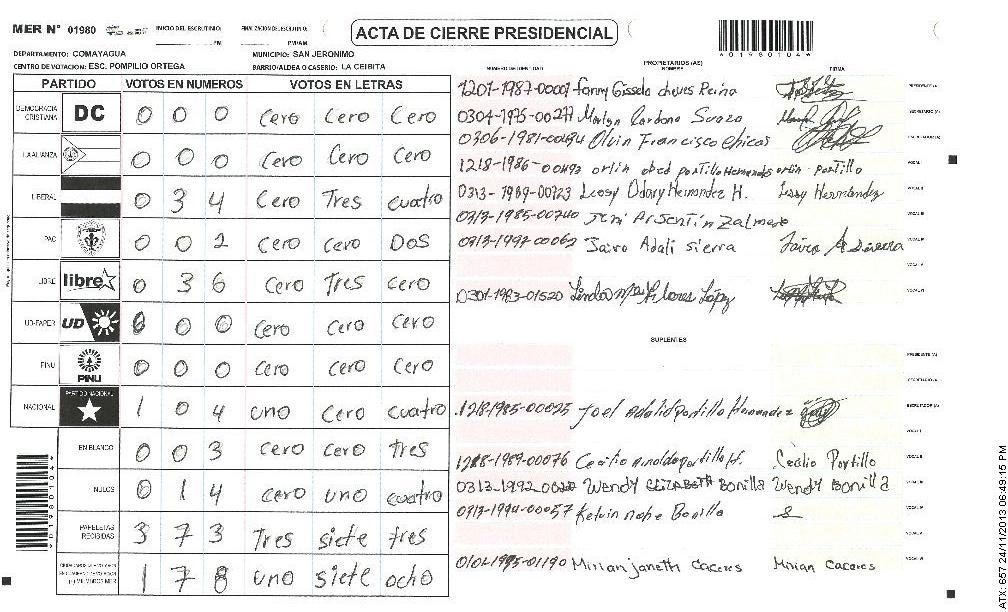 MER N° 01980 INICIO DEL ESCRUTINIO: PM FINALIZACION DEL ESCRUTINIO: PM/AM
ACTA DE CIERRE PRESIDENCIAL
*01980104*
DEPARTAMENTO: COMAYAGUA MUNICIPIO: SAN JERONIMO
CENTRO DE VOTACION: ESC. POMPILIO ORTEGA BARRIO/ALDEA O CASERIO: LA CEIBITA
PARTIDO VOTOS EN NUMEROS VOTOS EN LETRAS
DEMOCRACIA CRISTIANA DC 0 0 0 Cero Cero Cero
LA ALIANZA 0 0 0 Cero Cero Cero
LIBERAL 0 3 4 Cero Tres cuatro
PAC 0 0 2 Cero Cero Dos
LIBRE libre 0 3 6 Cero Tres Cero
UD-FAPER UD 0 0 0 Cero Cero Cero
PINU PINU 0 0 0 Cero Cero Cero
NACIONAL PARTIDO NACIONAL 1 0 4 uno Cero cuatro
EN BLANCO 0 0 3 Cero Cero Tres
NULOS 0 1 4 Cero uno cuatro
PAPELETAS RECIBIDAS 3 7 3 Tres siete tres
1 7 8 uno siete ocho
*01980104*
NUMERO DE IDENTIDAD PROPIETARIOS (AS) NOMBRE FIRMA
1201-1987-00001 Fanny Gissela Peña PRESIDENTE (A)
0304-1975-00277 Cardona Suazo SECRETARIO (A)
0306-1981-00494 Olvin Francisco Chicas ESCRUTADOR (A)
1218-1986-00493 orlin obed portillo Hernandez orlin portillo VOCAL I
0313-1989-00723 Lessy Odary Hernandez H. Lessy Hernández VOCAL II
0313-1985-00740 VOCAL III
0313-1997-00062 Jairo Adali sierra Jairo A Sierra VOCAL IV
VOCAL V
0301-1983-01520 Linda Mª López VOCAL VI
SUPLENTES
PRESIDENTE (A)
SECRETARIO (A)
1218-1985-00025 Joel Adalid Portillo Hernandez ESCRUTADOR (A)
VOCAL I
1288-1989-00076 Cecilio portillo H. Cecilio Portillo VOCAL II
0313-1992 Wendy ELIZABETH Bonilla Wendy Bonilla VOCAL III
0313-1994-00057 Kelvin Bonilla VOCAL IV
VOCAL V
0101-1995-01190 Mirian janeth Caceres Mirian Caceres VOCAL VI
ATX: 657 24/11/2013 06:49:15 PM